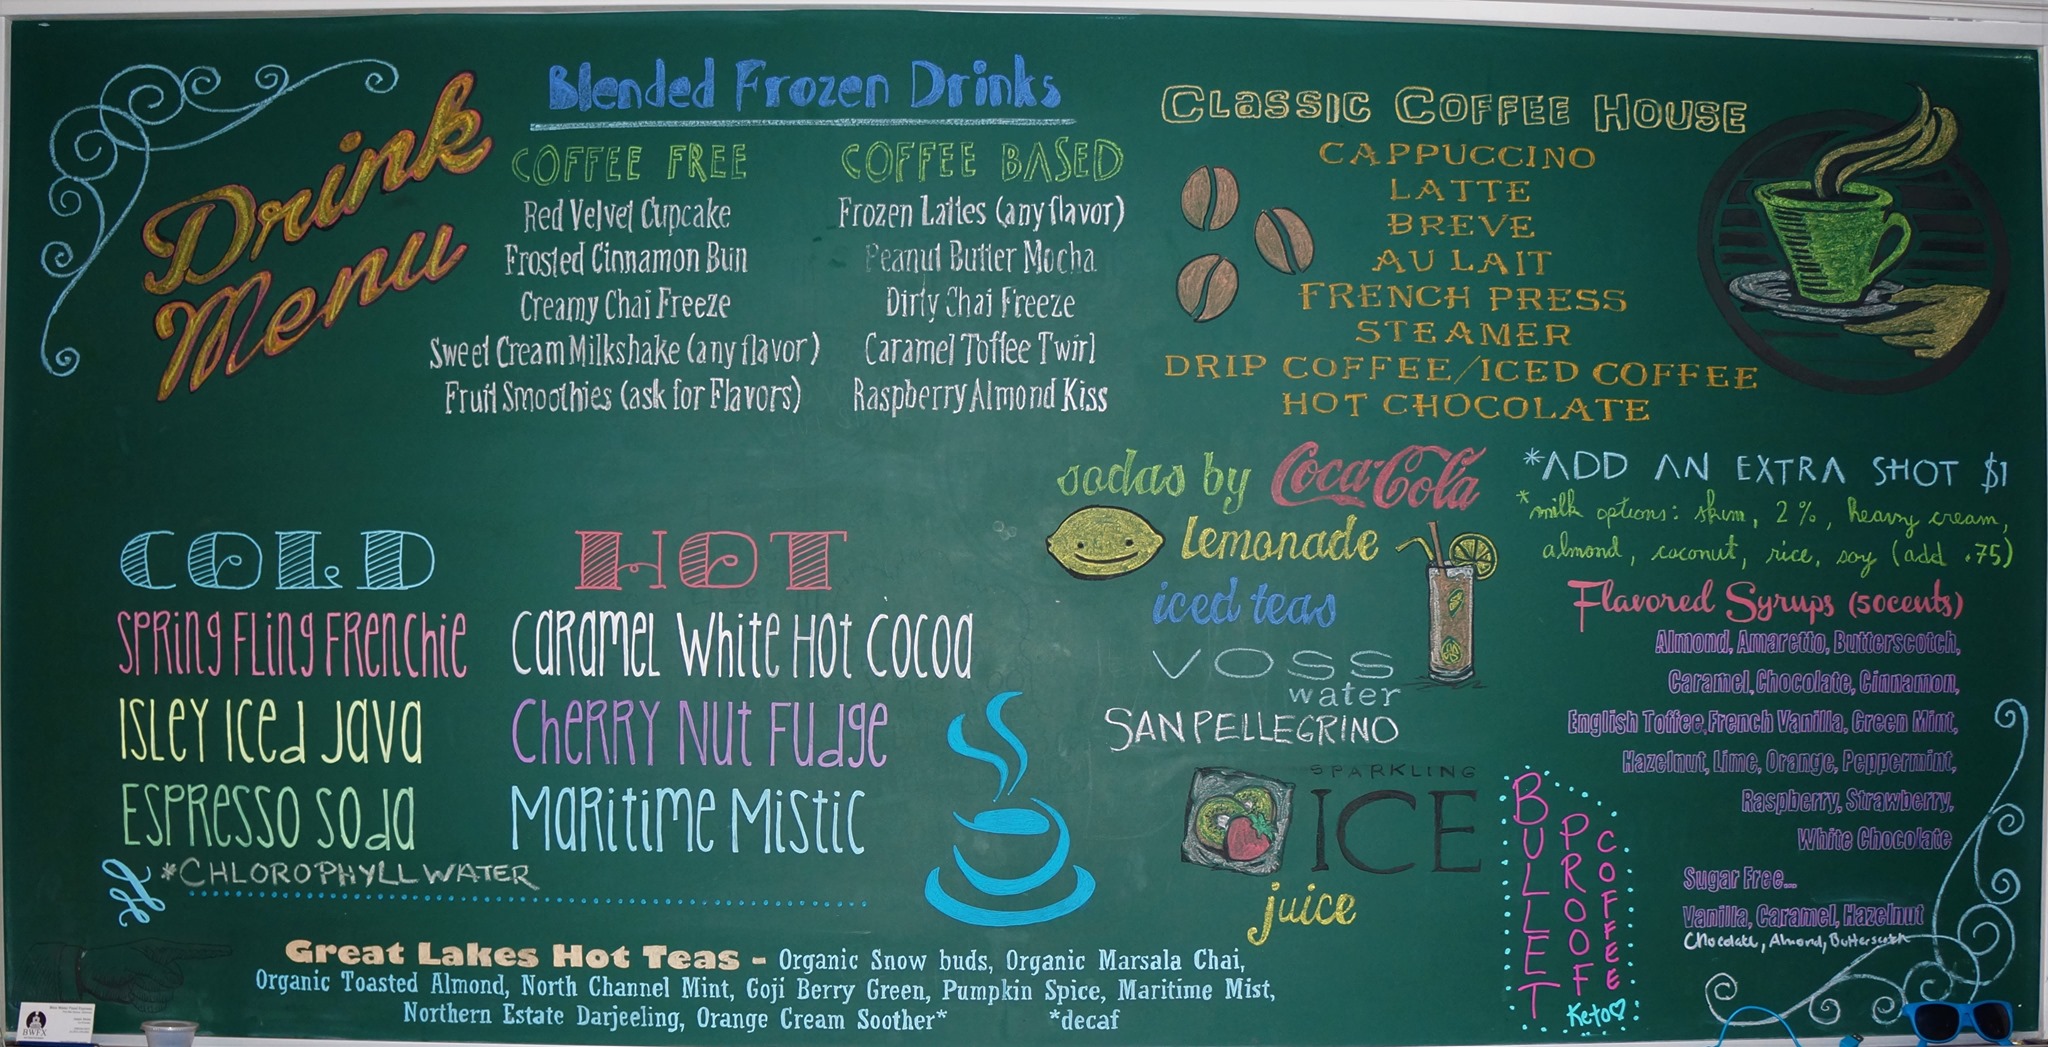 Drink
Menu
Blended Frozen Drinks
COFFEE FREE
Red Velvet Cupcake
Frosted Cinnamon Bun
Creamy Chai Freeze
Sweet Cream Milkshake (any flavor)
Fruit Smoothies (ask for Flavors)
COFFEE BASED
Frozen Lattes (any flavor)
Peanut Butter Mocha
Dirty Chai Freeze
Caramel Toffee Twirl
Raspberry Almond Kiss
CLASSIC COFFEE HOUSE
CAPPUCCINO
LATTE
BREVE
AU LAIT
FRENCH PRESS
STEAMER
DRIP COFFEE/ICED COFFEE
HOT CHOCOLATE
*ADD AN EXTRA SHOT $1
*milk options: skim, 2%, heavy cream,
almond, coconut, rice, soy (add .75)
Flavored Syrups (50cents)
Almond, Amaretto, Butterscotch,
Caramel, Chocolate, Cinnamon,
English Toffee, French Vanilla, Green Mint,
Hazelnut, Lime, Orange, Peppermint,
Raspberry, Strawberry,
White Chocolate
Sugar Free...
Vanilla, Caramel, Hazelnut
Chocolate, Almond, Butterscotch
sodas by Coca-Cola
lemonade
iced teas
VOSS
water
SANPELLEGRINO
SPARKLING
ICE
juice
BULLET
PROOF
COFFEE
Keto
COLD
SPRING FLING FRENCHIE
ISLEY ICED JAVA
ESPRESSO SODA
*CHLOROPHYLL WATER
HOT
CARAMEL WHITE HOT COCOA
CHERRY NUT FUDGE
MARITIME MISTIC
Great Lakes Hot Teas - Organic Snow buds, Organic Marsala Chai,
Organic Toasted Almond, North Channel Mint, Goji Berry Green, Pumpkin Spice, Maritime Mist,
Northern Estate Darjeeling, Orange Cream Soother* *decaf
BWFX